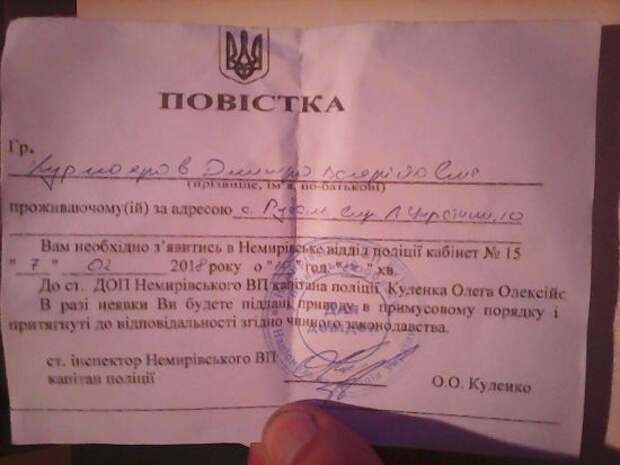 ПОВІСТКА
Гр.
Дмитро
(прізвище, ім'я, по-батькові)
проживаючому(ій) за адресою с.
Вам необхідно з'явитись в Немирівсько відділ поліції кабінет № 15
" 7 " 02 2018 року о " 10 " год. " " хв.
До ст. ДОП Немирівського ВП капітана поліції Куленка Олега Олексійс
В разі неявки Ви будете піддані приводу в примусовому порядку і
притягнуті до відповідальності згідно чинного законодавства.
ст. інспектор Немирівського ВП
капітан поліції О.О. Куленко
Для
довідок